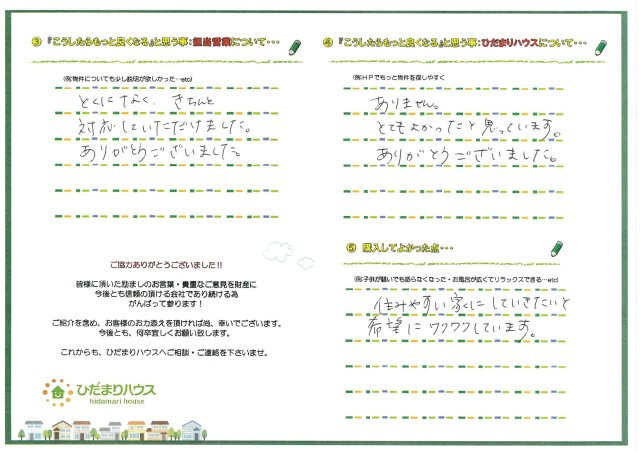 ③『こうしたらもっと良くなる』と思う事:担当営業について・・・
(例:物件についても少し説明が欲しかった…etc)
とくになく、きちんと
対応していただけました。
ありがとうございました。
ご協力ありがとうございました!!
皆様に頂いた励ましのお言葉・貴重なご意見を財産に
今後とも信頼の頂ける会社であり続ける為
がんばって参ります!
ご紹介を含め、お客様のお力添えを頂ければ尚、幸いでございます。
今後とも、何卒宜しくお願い致します。
これからも、ひだまりハウスへご相談・ご連絡を下さいませ。
ひだまりハウス
hidamari house
④『こうしたらもっと良くなる』と思う事:ひだまりハウスについて・・・
(例:HPでもっと物件を探しやすく
ありません。
とてもよかったと思っています。
ありがとうございました。
⑤ 購入してよかった点・・・
(例:子供が騒いでも怒らなくなった・お風呂が広くてリラックスできる…etc)
住みやすい家にしていきたいと
希望にワクワクしています。